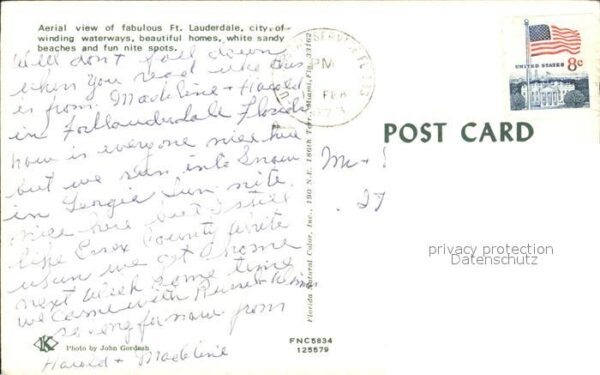 Aerial view of fabulous Ft. Lauderdale, city of
winding waterways, beautiful homes, white sandy
beaches and fun nite spots.
Well don't fall down
when you read like this
is from Madeline + Harold
in Fortlauderdale Florida
how is everyone nice here
but we run into snow
in Georgia Sun nite.
nice here but I still
like Essex County write
when we get home
next week some time
we came with
so long for now from
Harold + Madeline
K
Photo by John Gordash
FNC5834
125579
Florida Natural Color, Inc., 190 N.E. 186th Terr., Miami, Fla. 33162
PM
FEB
UNITED STATES
8c
POST CARD
privacy protection
Datenschutz